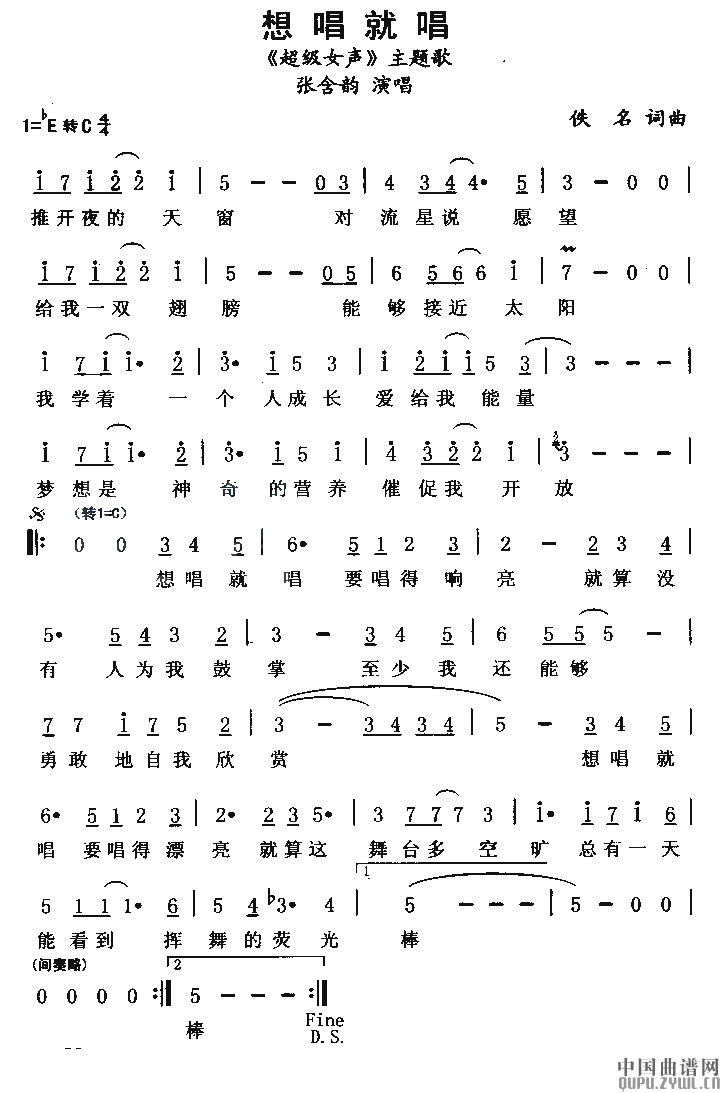 想唱就唱
《超级女声》主题歌
张含韵 演唱
1=♭E 转C 4/4
佚 名 词曲
1 7 1 2 2 1 | 5 - - 0 3 | 4 3 4 4· 5 | 3 - 0 0 |
推开夜的 天 窗 对 流星说 愿 望
1 7 1 2 2 1 | 5 - - 0 5 | 6 5 6 6 1 | 7 - 0 0 |
给我一双 翅 膀 能 够 接近 太 阳
1 7 1 1· 2 | 3· 1 5 3 | 1 2 1 1 5 3 | 3 - - - |
我 学着 一 个 人成长 爱 给我 能 量
1 7 1 1· 2 | 3· 1 5 1 | 4 3 2 2 1 2 | 3 - - - |
梦 想是 神 奇 的营养 催 促我 开 放
(转1=C)
0 0 3 4 5 | 6· 5 1 2 3 | 2 - 2 3 4 |
想唱就 唱 要唱得 响 亮 就算没
5· 5 4 3 2 | 3 - 3 4 5 | 6 5 5 5 - |
有 人为我 鼓 掌 至少我 还 能够
7 7 1 7 5 2 | 3 - 3 4 3 4 | 5 - 3 4 5 |
勇敢 地自我欣 赏 想唱就
6· 5 1 2 3 | 2· 2 3 5· | 3 7 7 7 3 | 1· 1 7 1 6 |
唱 要唱得 漂 亮 就算这 舞台多 空 旷 总有一天
1.
5 1 1 1· 6 | 5 4 ♭3· 4 | 5 - - - | 5 - 0 0 |
能看到 挥 舞的荧 光 棒
(间奏略)
2
0 0 0 0 :| 5 - - - :|
棒
Fine
D.S.
中国曲谱网
QUPU.ZYWL.CN